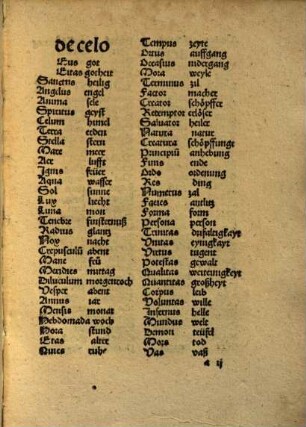 de celo
Eus got
Eitas gotheit
Sanctus heilig
Angelus engel
Anima sele
Spiritus geyst
Celum himel
Terra erden
Stella stern
Mare meer
Aer lufft
Ignis feüer
Aqua wasser
Sol sunne
Lux liecht
Luna mon
Tenebre finsternuß
Radius glantz
Nox nacht
Crepusculū abent
Mane frü
Meridies mittag
Diluculum morgenroth
Vesper abent
Annus iar
Mensis monat
Hebdomada woch
Hora stund
Etas alter
Quies ruhe
Tempus zeyte
Ortus auffgang
Occasus nidergang
Mora weyle
Terminus zil
Factor macher
Creator schöpffer
Redemptor erlöser
Saluator heiler
Natura natur
Creatura schöpffunge
Principiū anhebung
Finis ende
Ordo ordenung
Res ding
Numerus zal
Facies antlitz
Forma form
Persona person
Trinitas drifaltigkayt
Vnitas eynigkayt
Virtus tugent
Potestas gewalt
Qualitas
Quantitas großheyt
Corpus leib
Voluntas wille
Infernus helle
Mundus welt
Demon teüfel
Mors tod
Vas vaß
a ij